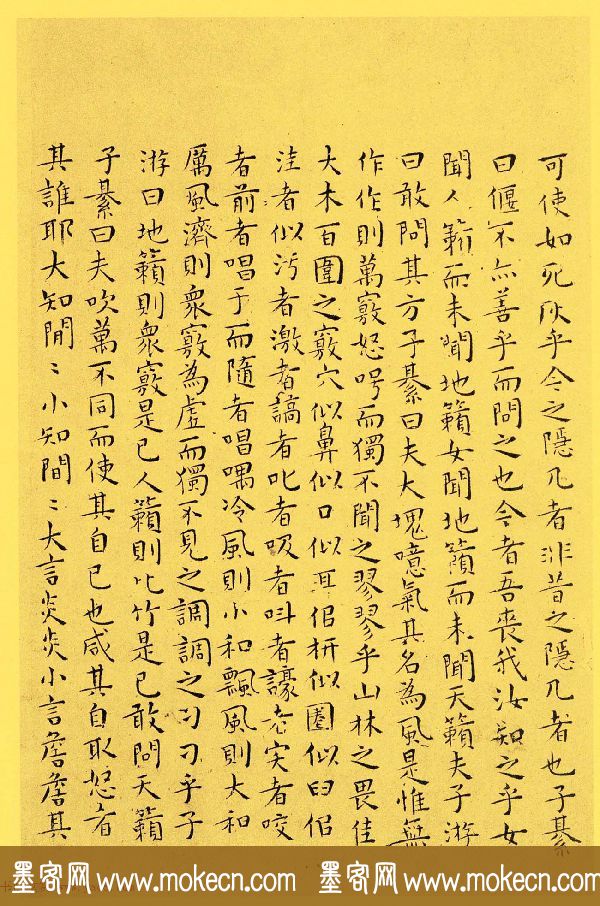 可使如死灰乎今之隱几者非昔之隱几者也子綦
曰偃不亦善乎而問之也今者吾喪我汝知之乎女
聞人籟而未聞地籟女聞地籟而未聞天籟夫子游
曰敢問其方子綦曰夫大塊噫氣其名為風是惟無
作作則萬竅怒呺而獨不聞之翏翏乎山林之畏佳
大木百圍之竅穴似鼻似口似耳佀枅似圈似臼佀
洼者似污者激者謞者叱者吸者叫者譹者宎者咬
者前者唱于而隨者唱喁冷風則小和飄風則大和
厲風濟則衆竅為虛而獨不見之調調之刁刁乎子
游曰地籟則衆竅是已人籟則比竹是已敢問天籟
子綦曰夫吹萬不同而使其自已也咸其自取怒者
其誰耶大知閒〻小知間〻大言炎炎小言詹詹其
墨客网 www.mokecn.com 墨客网 www.mokecn.com